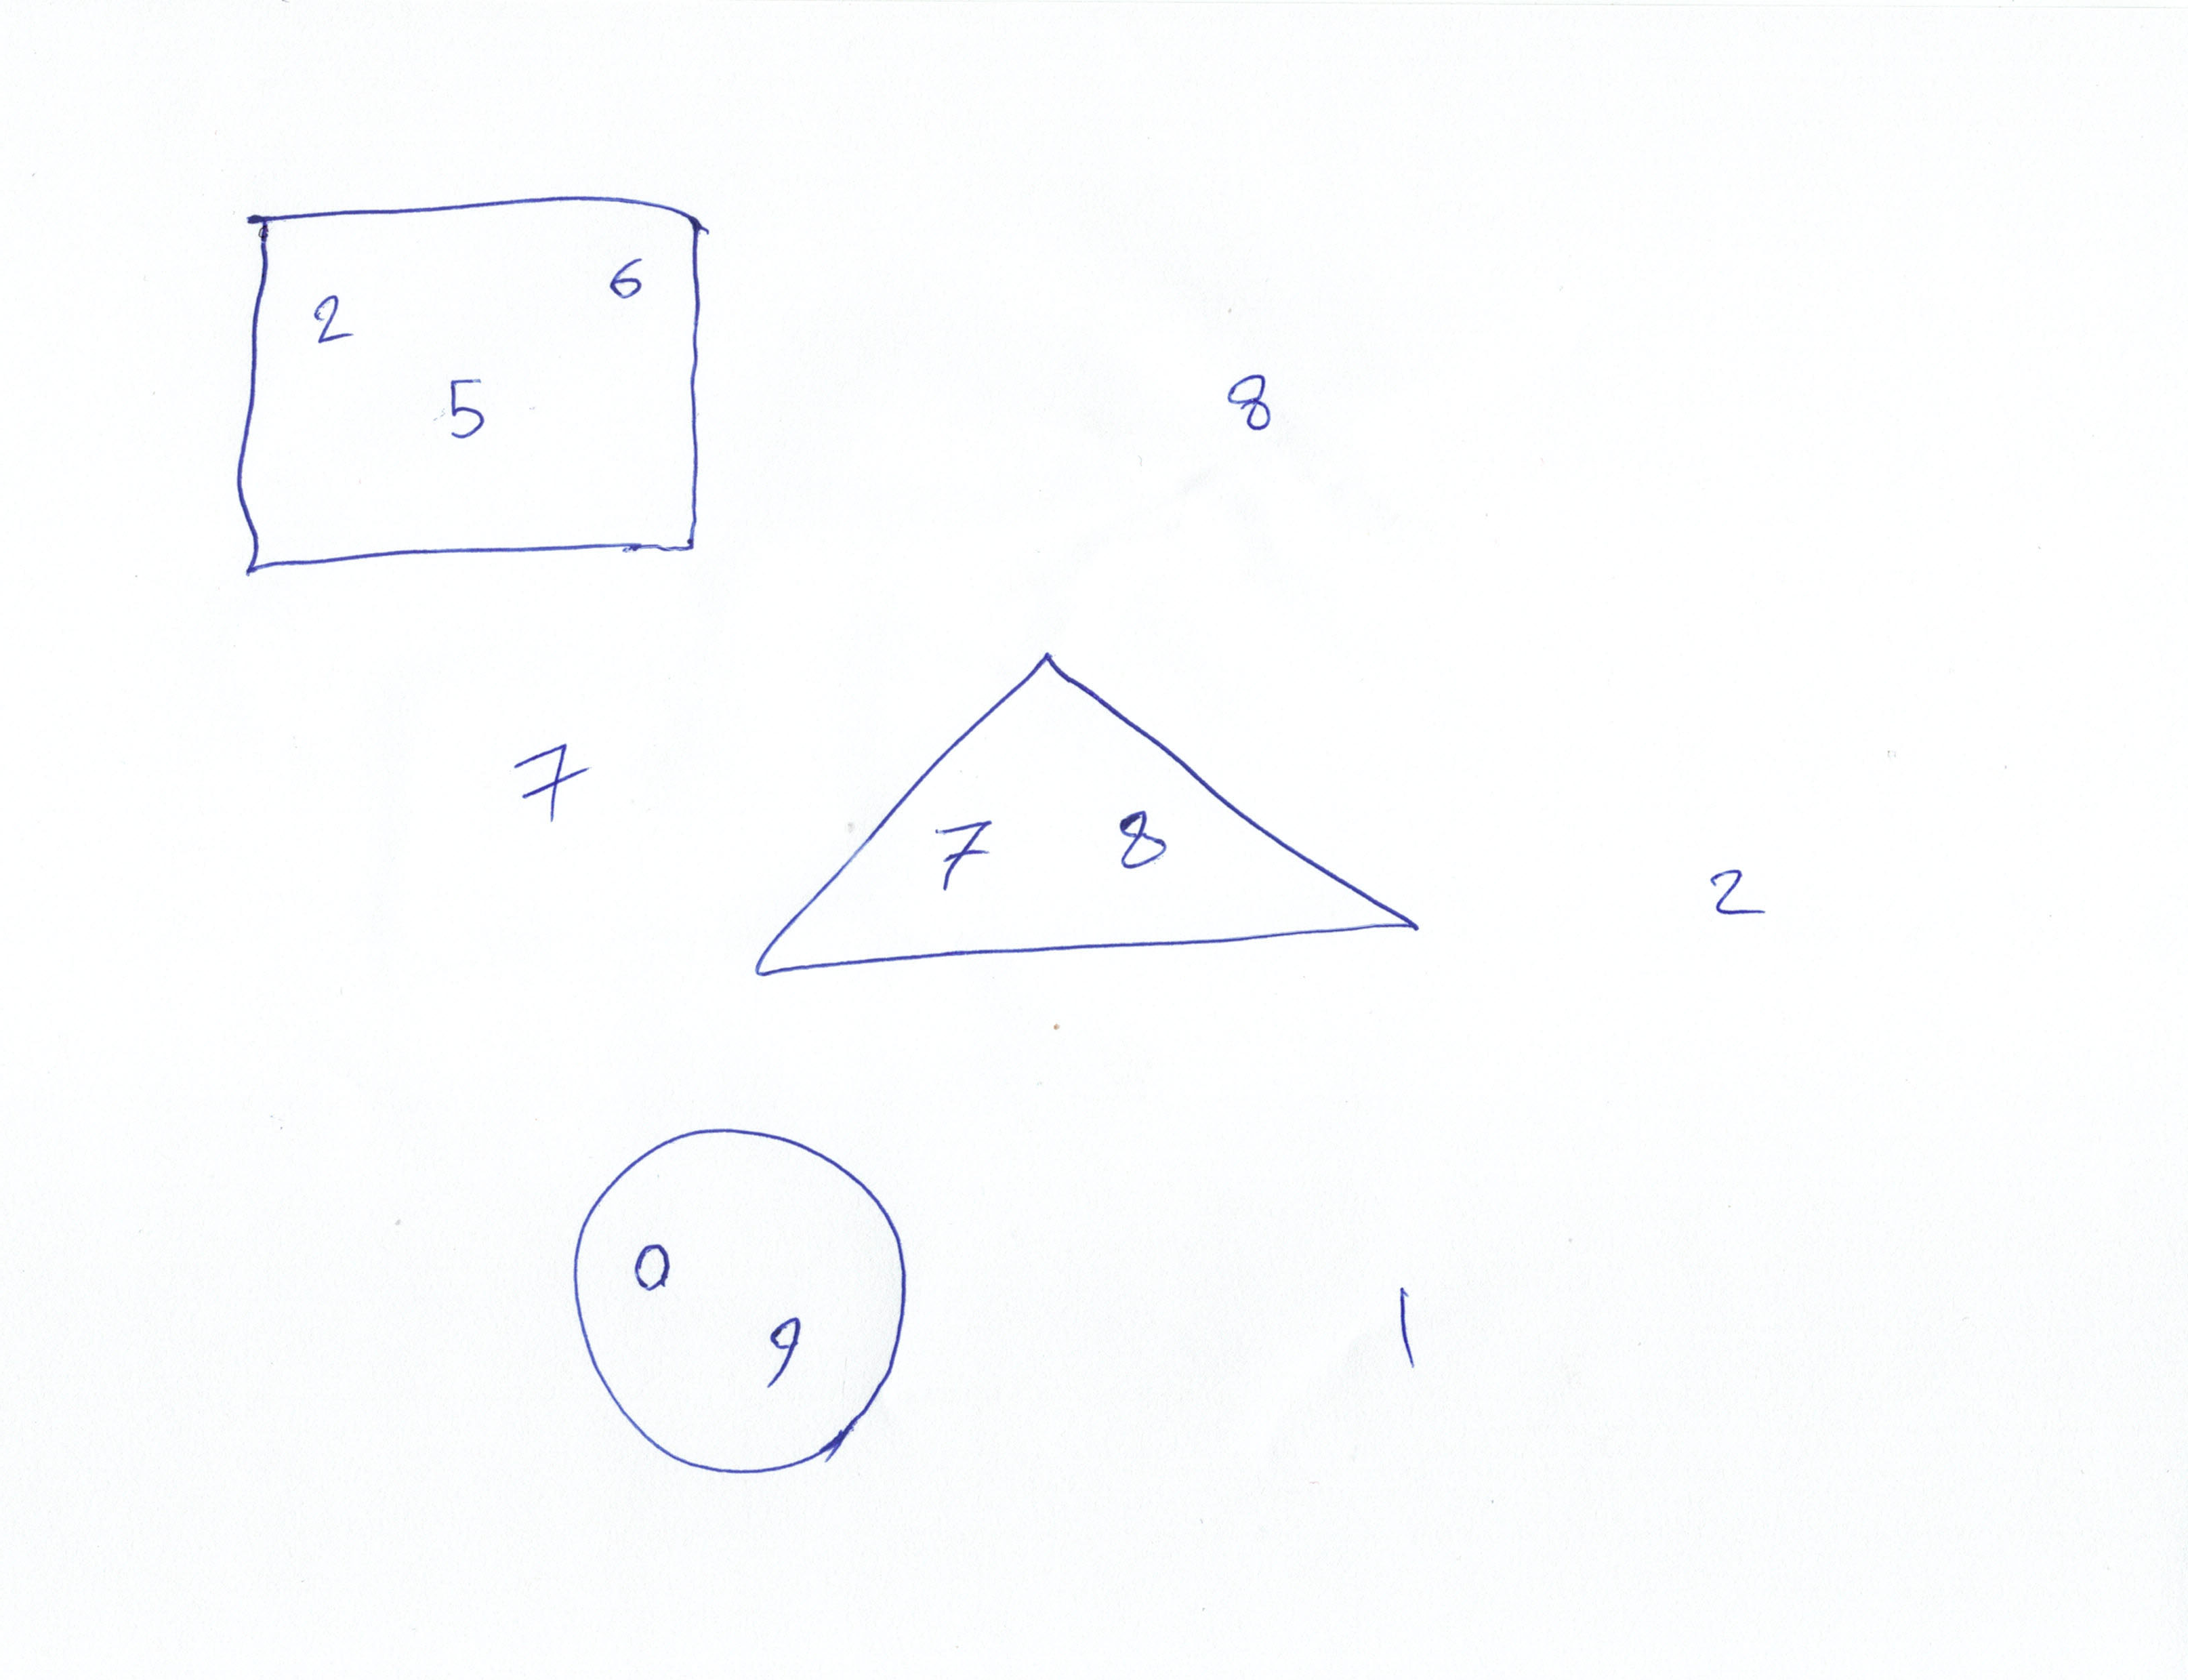 2 6
5
8
7
7 8
2
0
9
1